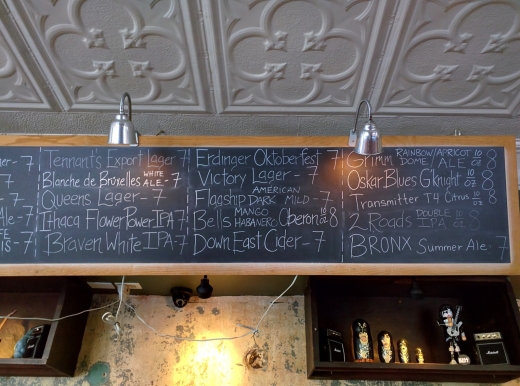 er - 7
7
7
Ale - 7
FE
IS - 7
Tennants Export Lager 7
Blanche de Bruxelles WHITE ALE - 7
Queens Lager - 7
Ithaca Flower Power IPA 7
Braven White IPA - 7
Erdinger Oktoberfest 7
Victory Lager - 7
Flagship AMERICAN DARK MILD - 7
Bells MANGO HABANERO Oberon 10 oz 8
Down East Cider - 7
Grimm RAINBOW/APRICOT DOME/ALE 10 oz 8
Oskar Blues G'Knight 10 oz 8
Transmitter T4 Citrus 10 oz 8
2 Roads DOUBLE IPA 10 oz 8
BRONX Summer Ale - 7
Marshall